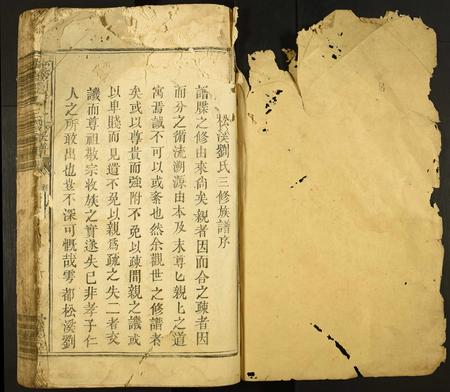 松溪劉氏三修族譜序
譜牒之修由來尚矣親者因而合之疎者因
而分之循流溯源由本及末尊匕親匕之道
寓焉誠不可以或紊也然余觀世之修譜者
矣或以尊貴而強附不免以疎間親之譏或
以卑賤而見遺不免以親爲疏之失二者交
譏而尊祖敬宗收族之實遂失已非孝子仁
人之所敢出也豈不深可慨哉雩都松溪劉